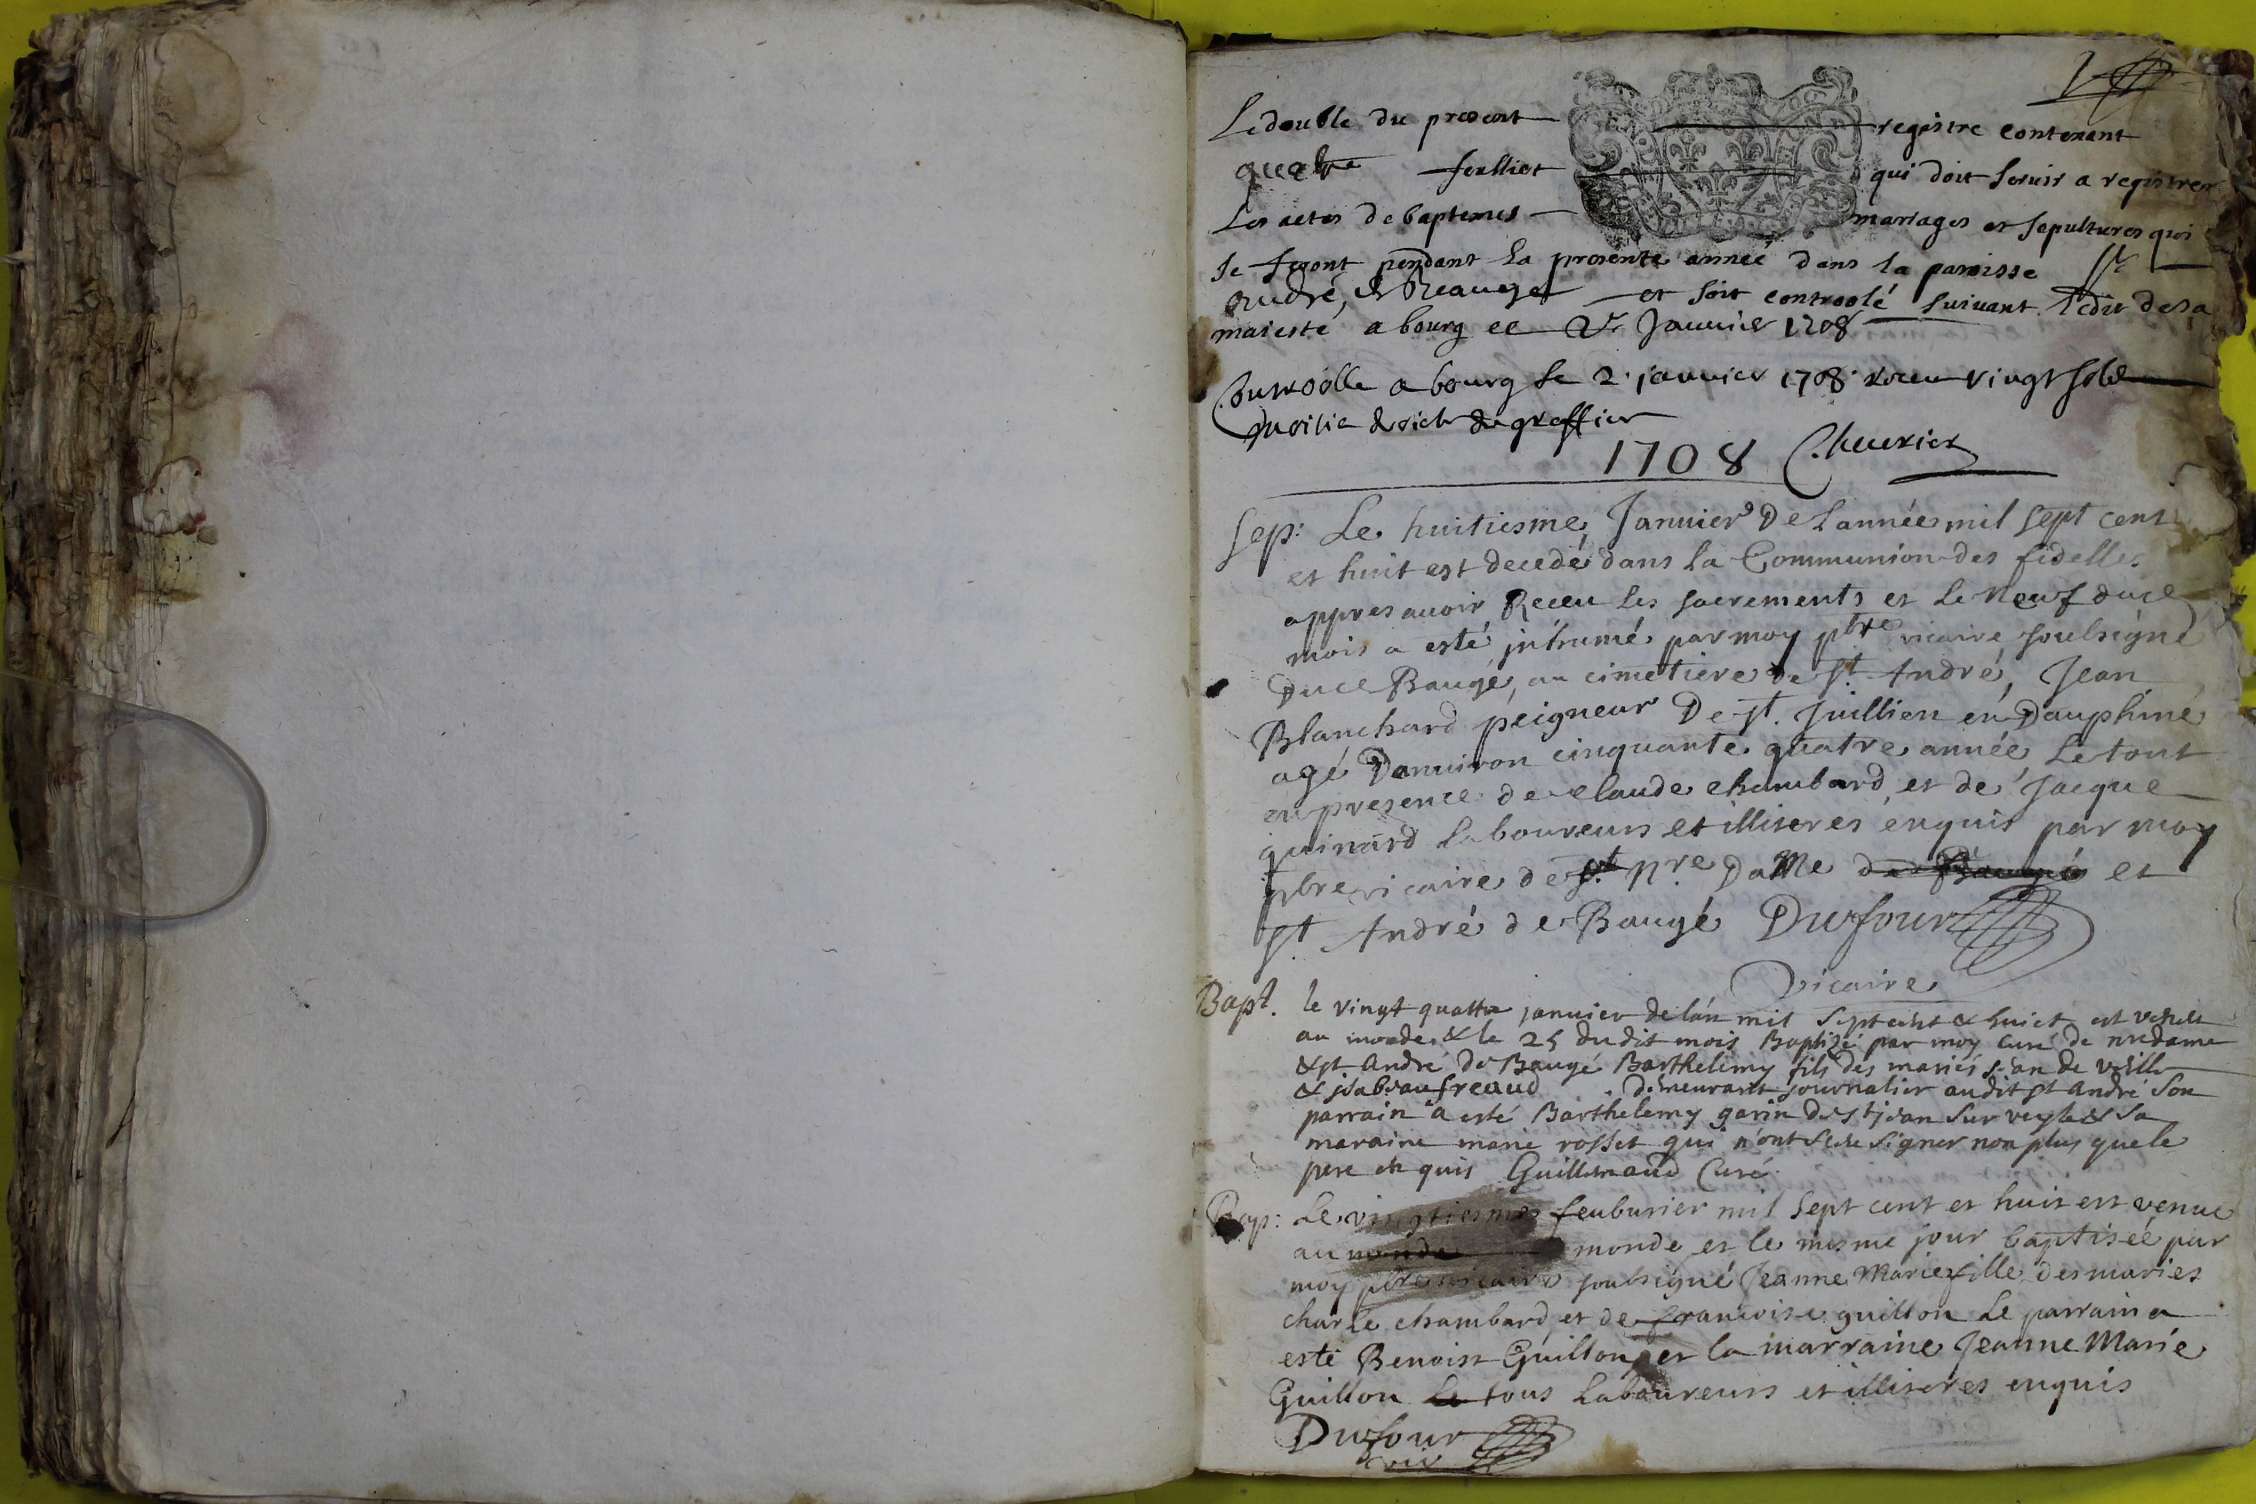 1
Le double du present registre contenant
quatre feulliet qui doit servir a registrer
Les actes de baptemes mariages et sepultures qui
se feront pendant la presente année dans la paroisse St
André de Beaugé et soit controolé suivant l'edit de sa
maiesté a bourg ce 2e Januier 1708
Controolle a bourg le 2. januier 1708. receu vingt sols
moitié droict de greffier
1708 Cheurier
Sep: Le huitiesme Januier De Lannée mil sept cent
et huit est decedé dans la Communion des fidelles
appres auoir Receu les sacrements et le neuf duce
mois a esté inhumé par moy pbre vicaire soubsigné
Duce Baugé, au cimetiere de st. André, Jean
Blanchard peigneur De st. Juillien en Dauphiné
agé Danuiron cinquante quatre année Le tout
en presence de claude chambard et de Jacque
guinard Laboureurs et illiteres enquis par moy
pbre vicaire de st. Nre DaMe de Baugé et
st. André de Baugé Dufour
vicaire
Bapt. le vingt quattre januier de lan mil sept cent & huict est venu
au monde & le 25 du dit mois Baptisé par moy Curé de nredame
& st André de Baugé Barthelemy fils des mariés jean de veille
& jsabeau freaud demeurant journalier audit st André Son
parrain a esté Barthelemy garin de st jean sur veyle & sa
maraine marie rosset qui n'ont sceu signer non plus que le
pere en quis Guillemaud Curé
Bap: Le vingtiesme feuburier mil sept cent et huit est venue
au monde monde et le mesme jour baptisée par
moy pbre vicaire soubsigné Jeanne Marie fille des mariés
charle chambard et de francoise guillon Le parrain a
esté Benoist Guillon et la marraine Jeanne Marie
Guillon Le tous Laboureurs et illiteres enquis
Dufour
vic